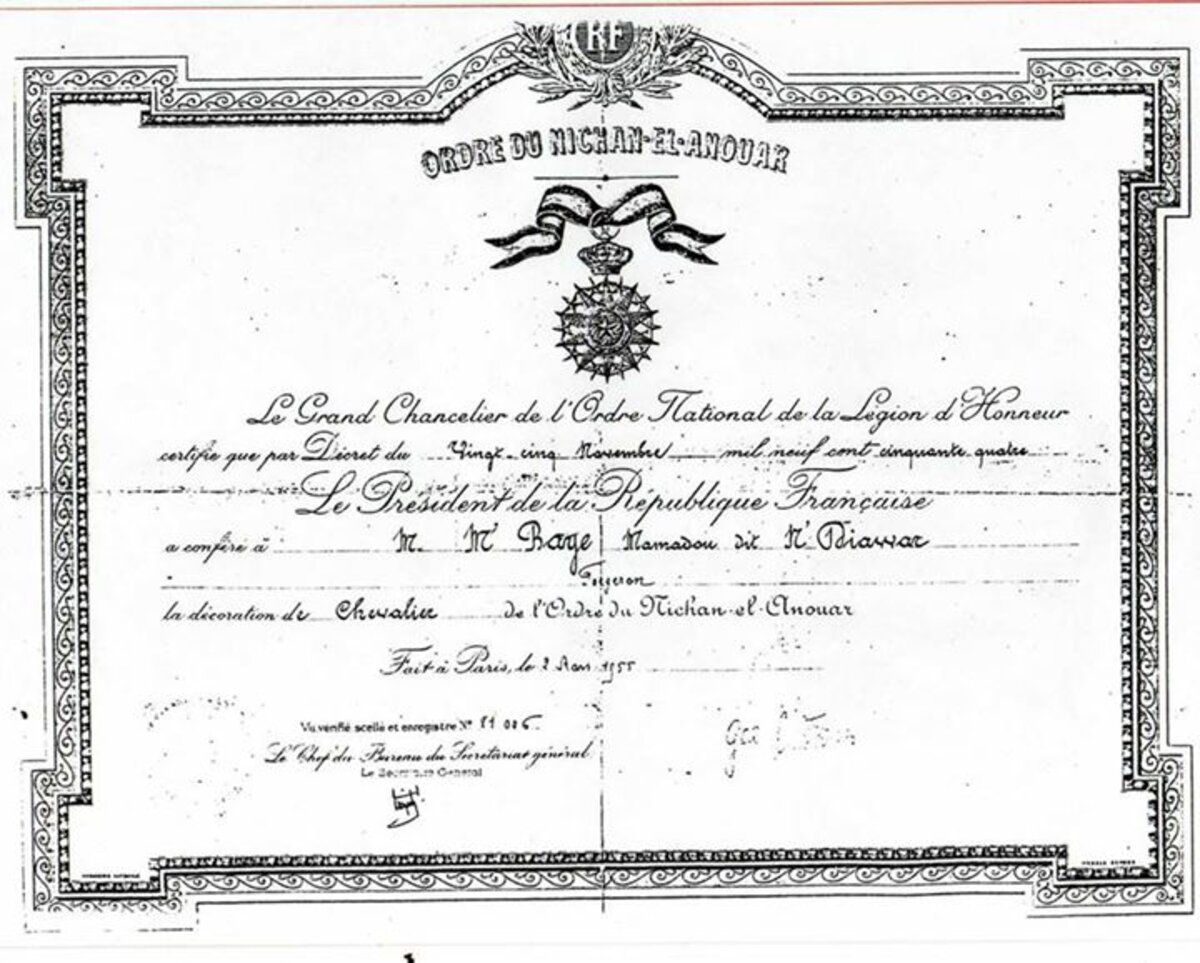 RF
ORDRE DU NICHAN-EL-ANOUAR
Le Grand Chancelier de l'Ordre National de la Légion d'Honneur
certifie que par Décret du Vingt-cinq Novembre mil neuf cent cinquante quatre
Le Président de la République Française
a conféré à M. M' Baye Mamadou dit N' Diawar
Forgeron
la décoration de Chevalier de l'Ordre du Nichan-el-Anouar
Fait à Paris, le 2 Mars 1955
Vu, vérifié scellé et enregistré N° 81 006
Le Chef du Bureau du Secrétariat général
Le Secrétaire Général